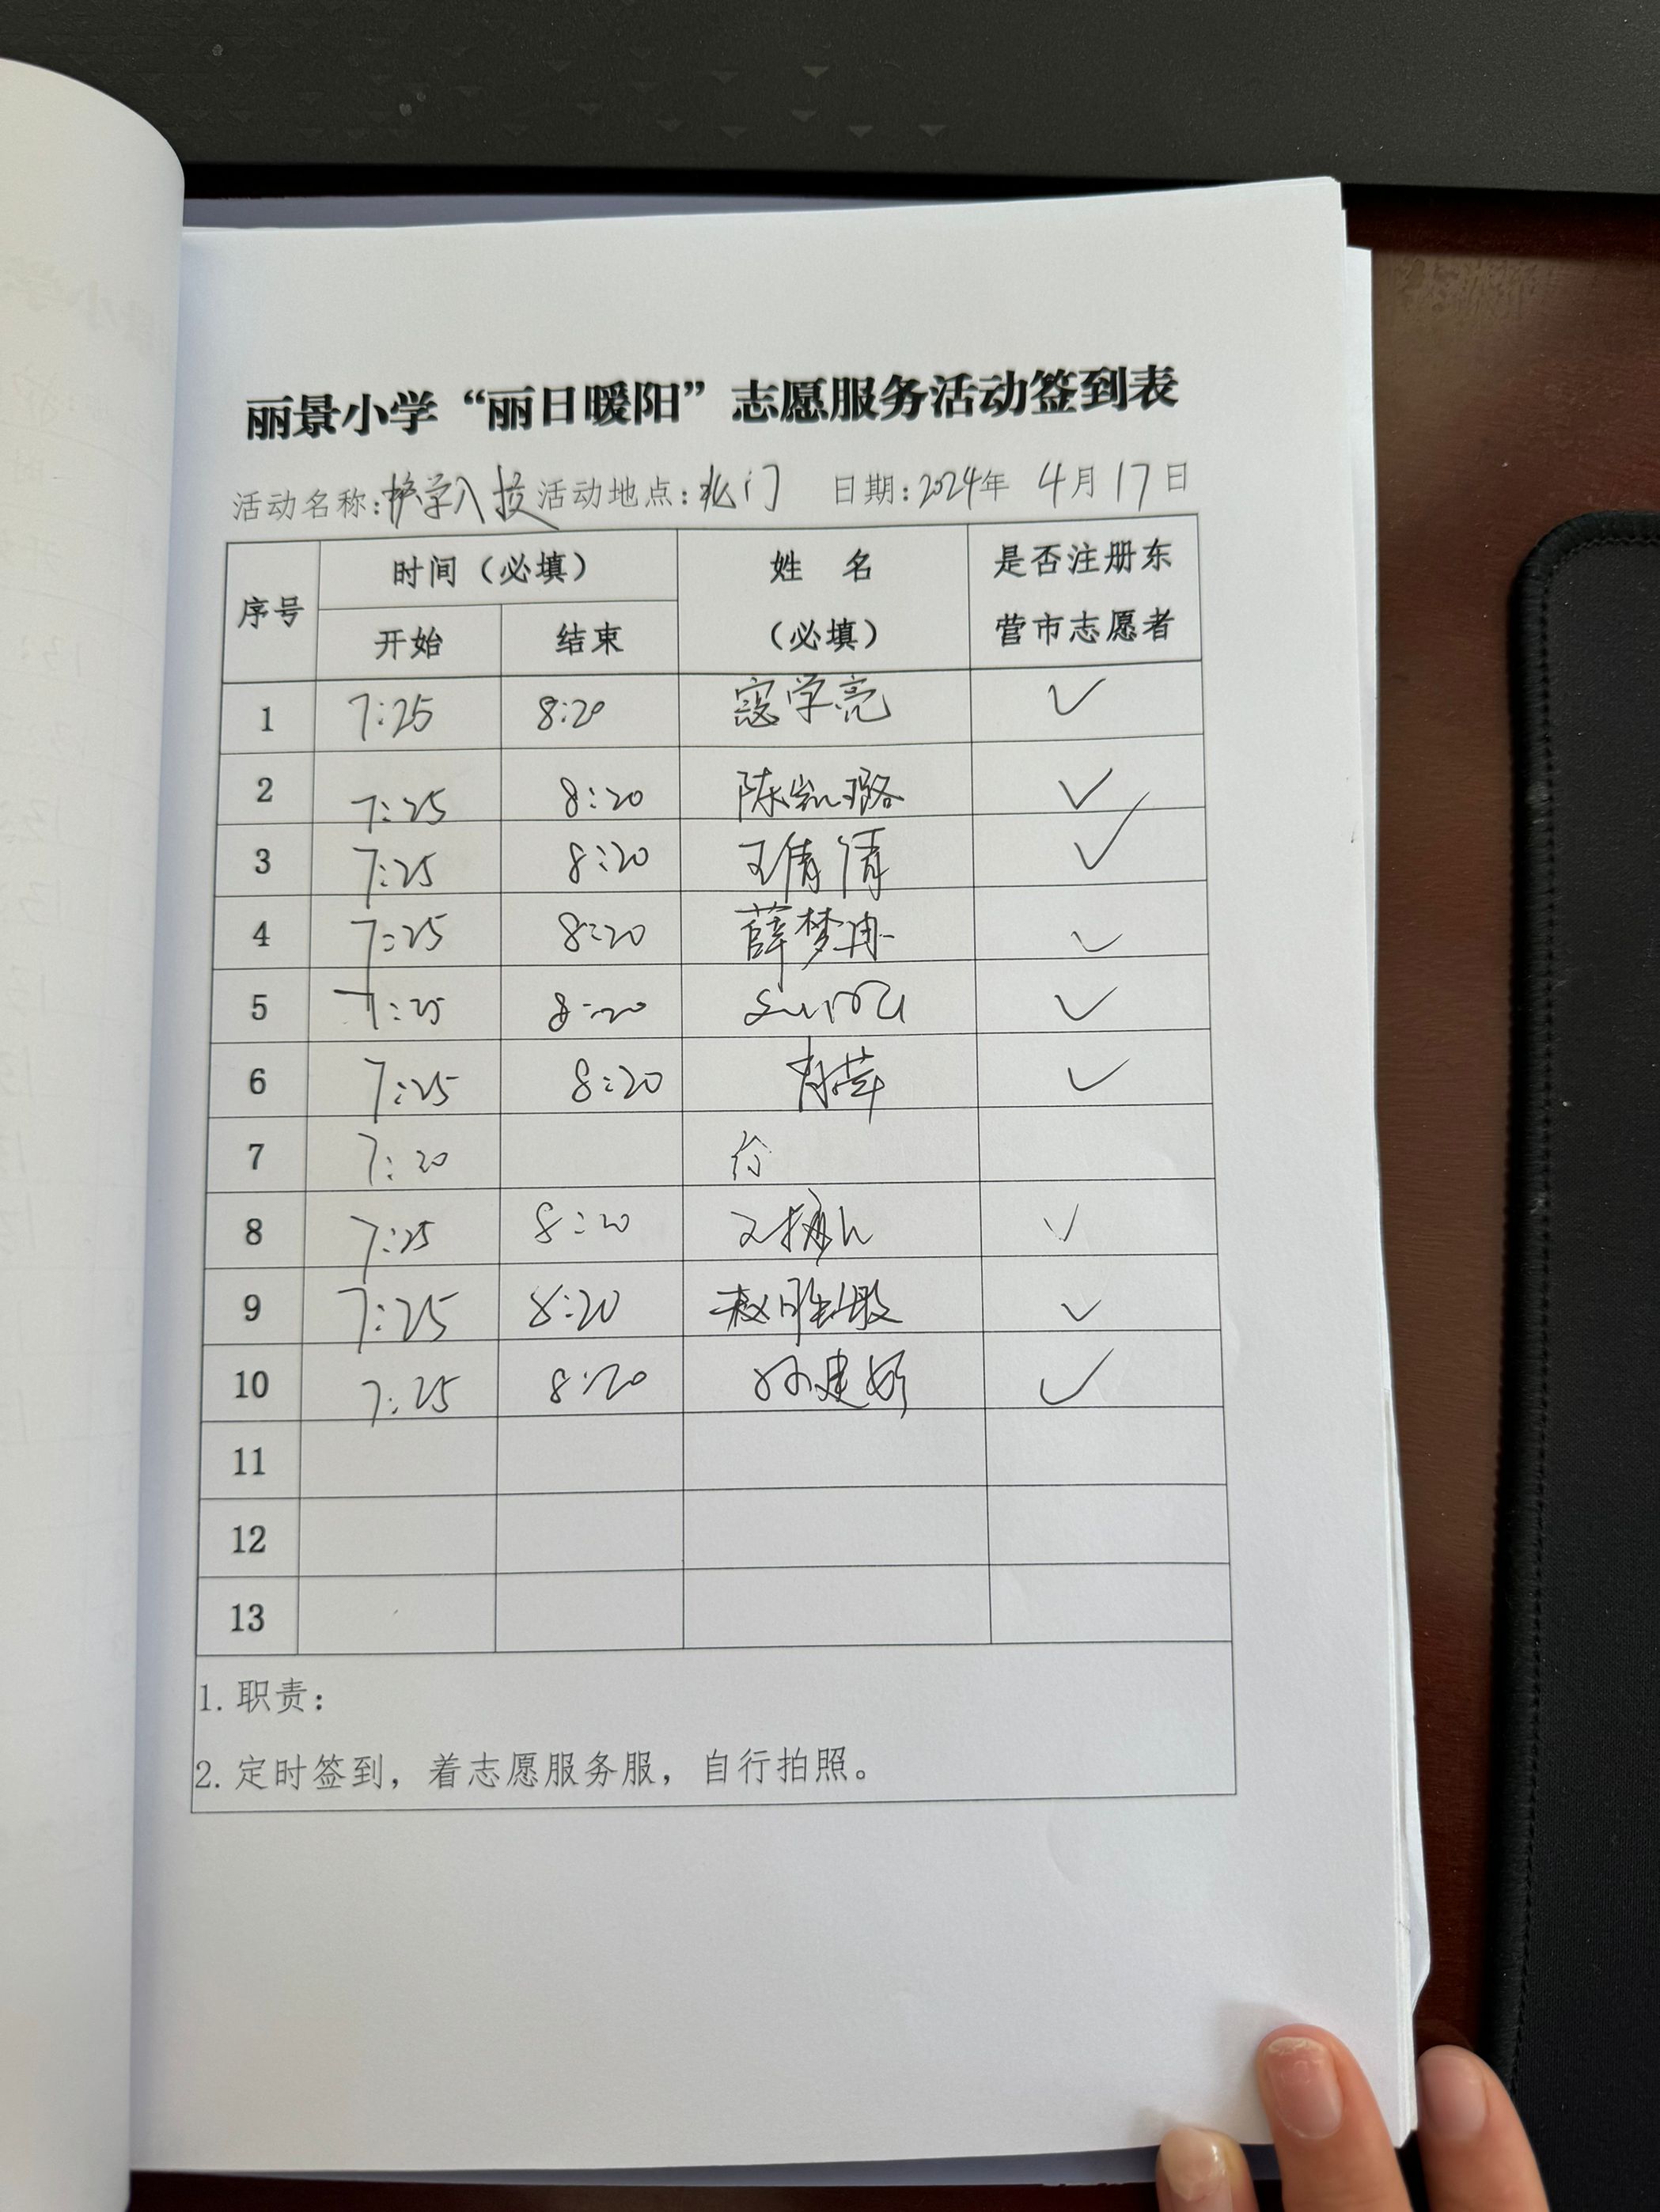 丽景小学“丽日暖阳”志愿服务活动签到表
活动名称:护学入校 活动地点:北门 日期:2024年 4月17日
序号 时间（必填） 姓 名（必填） 是否注册东营市志愿者
开始 结束
1 7:25 8:20 寇学亮 ✓
2 7:25 8:20 陈凯璐 ✓
3 7:25 8:20 王倩倩 ✓
4 7:25 8:20 薛梦冉 ✓
5 7:25 8:20 ✓
6 7:25 8:20 ✓
7 7:20
8 7:25 8:20 ✓
9 7:25 8:20 赵 ✓
10 7:25 8:20 孙建 ✓
11
12
13
1.职责：
2.定时签到，着志愿服务服，自行拍照。